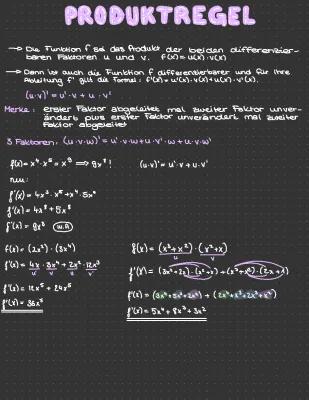 PRODUKTREGEL
→ Die Funktion f sei das Produkt der beiden differenzier-
baren Faktoren u und v. f(x) = u(x) · v(x)
→ Dann ist auch die Funktion f differenzierbar und für ihre
Ableitung f' gilt die Formel: f'(x) = u'(x) · v(x) + u(x) · v'(x).
(u·v)' = u' · v + u · v'
Merke: erster Faktor abgeleitet mal zweiter Faktor unver-
ändert plus erster Faktor unverändert mal zweiter
Faktor abgeleitet
3 Faktoren: (u·v·w)' = u'·v·w + u·v'·w + u·v·w'
f(x) = x⁴ · x⁵ = x⁹ ⟹ 9x⁸ ! (u·v)' = u' · v + u · v'
neu:
f'(x) = 4x³ · x⁵ + x⁴ · 5x⁴
f'(x) = 4x⁸ + 5x⁸
f'(x) = 9x⁸ w.A
f(x) = (2x²) · (3x⁴)
f'(x) = 4x · 3x⁴ + 2x² · 12x³
u' v u v'
f'(x) = 12x⁵ + 24x⁵
f'(x) = 36x⁵
f(x) = (x³+x²) · (x²+x)
u v
f'(x) = (3x²+2x) · (x²+x) + (x³+x²) · (2x+1)
f'(x) = (3x⁴+3x³+2x³+2x²) + (2x⁴+x³+2x³+x²)
f'(x) = 5x⁴ + 8x³ + 3x²